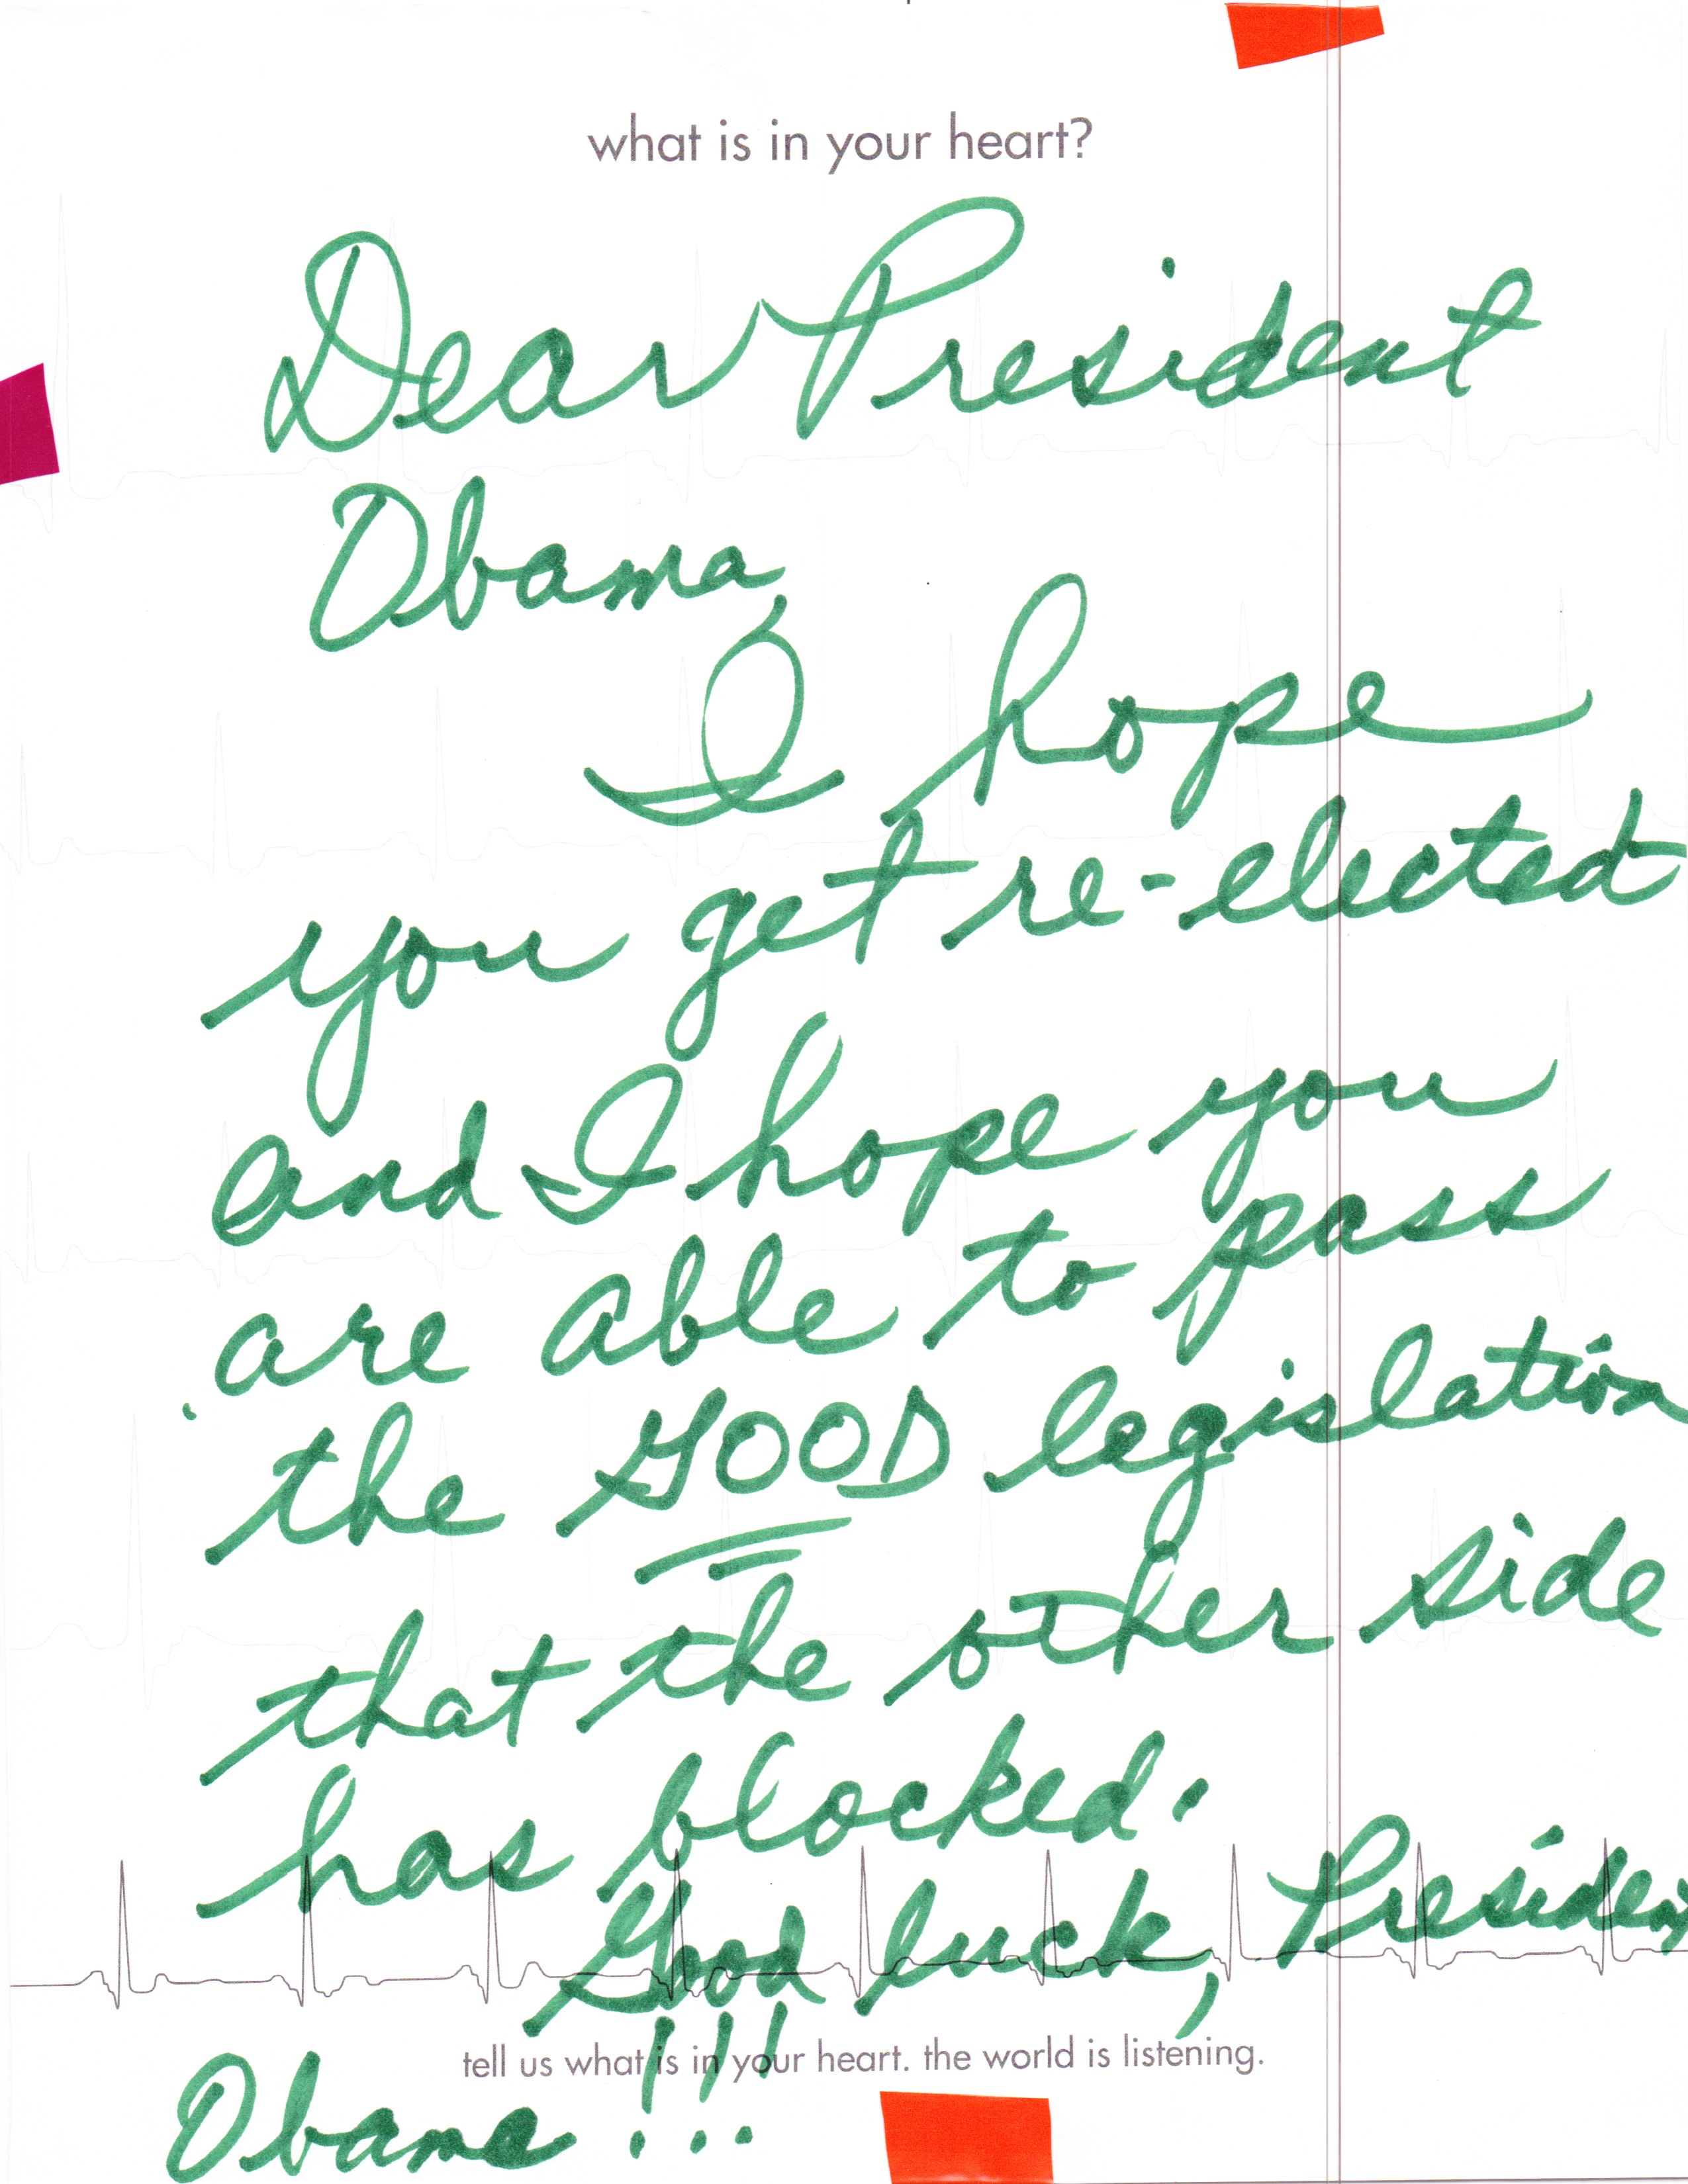 what is in your heart?
Dear President
Obama,
I hope
you get re-elected
and I hope you
are able to pass
the GOOD legislation
that the other side
has blocked.
Good luck, President
tell us what is in your heart. the world is listening.
Obama !!!